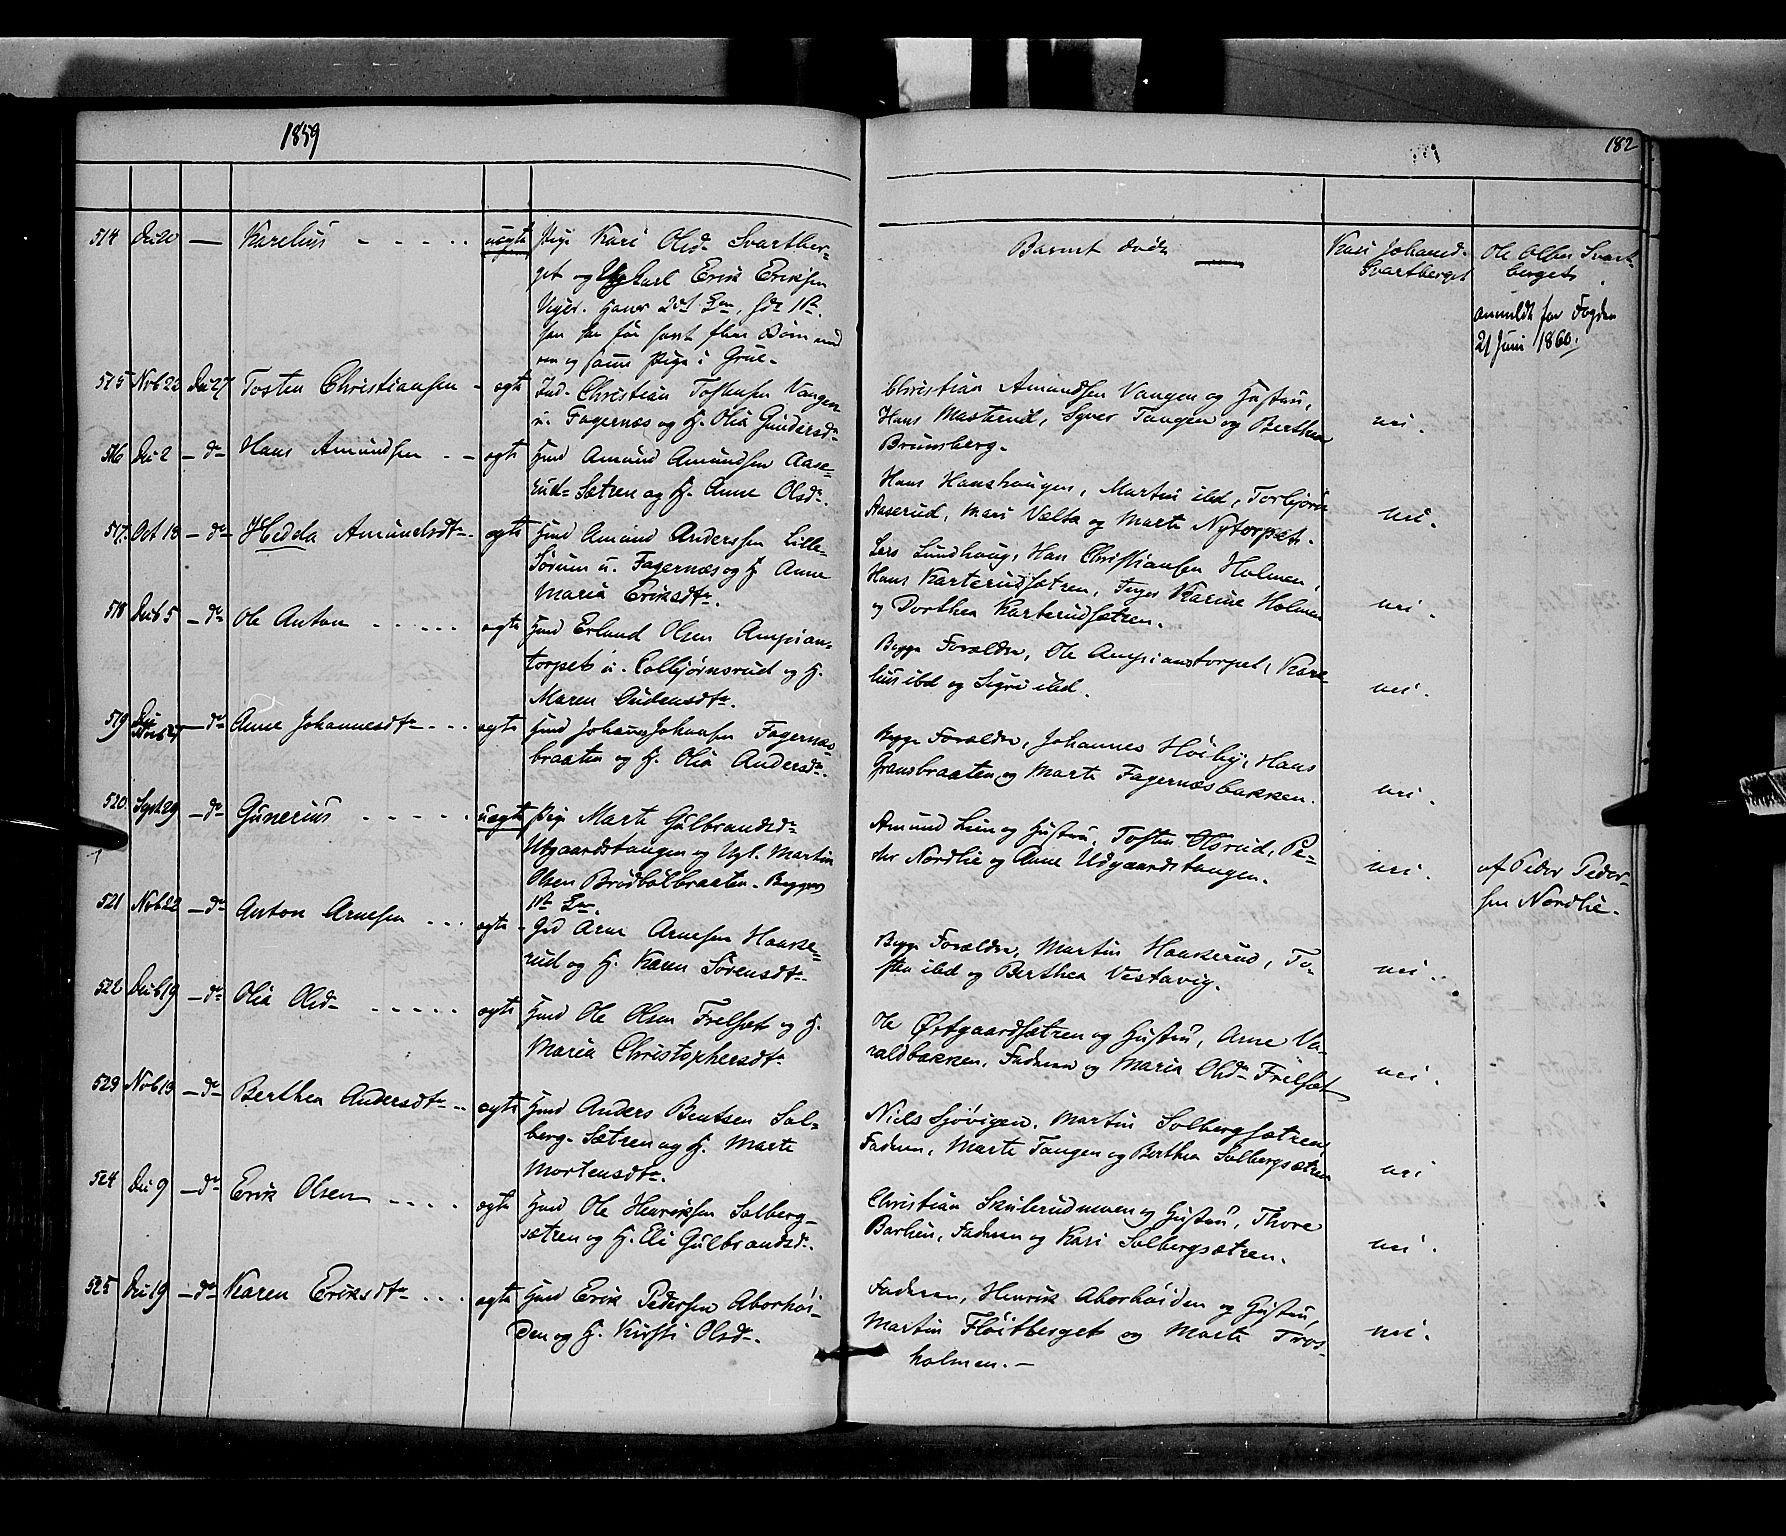 1859
182
514 Dec 20 — Karelius - - - - - uegte Pige Kari Olsd. Svartber-
get og Ugkarl Erik Eriksen
Barnet dødt —
Kari Johansd.
Svartberget
Ole Olsen Svart-
berget.
anmeldt for Fogden
21 Juni 1860.
515 Novb 22 Dec 27 Tosten Christiansen - egte Ind. Christian Tostensen Vangen
u. Fagernæs og H. Olia Gundersdr
Christian Amundsen Vangen og Hustru,
Hans Masterud, Syver Tangen og Berthea
Brunsberg.
nei.
516 Dec 2 — do Hans Amundsen - - egte Hmd Amund Amundsen Aase-
rud-Sætren og H. Anne Olsdr.
Hans Hanshaugen, Martin ibd, Torbjørn
Aaserud, Mari Vælta og Marte Nytorpet.
nei.
517. Oct 18 — do Hedda Amundsdtr. egte Hmd Amund Anderssen Lille-
Sørum u. Fagernæs og H. Anne
Maria Eriksdtr.
Lars Lundhaug, Han Christiansen Holmen,
Hans Karterudsætren, Karine Holmen
og Dorthea Karterudsætren.
nei.
518 Decb 5 — do Ole Anton - - - - - egte Hmd Erland Olsen Ampian-
torpet u. Colbjørnsrud og H.
Maren Gudensdtr.
Begge Forældre, Ole Ampianstorpet, Kare-
lius ibd og Sigri ibd.
nei.
519 — do Anne Johannesdtr - - - egte Hmd Johans Johansen Fagernæs-
braaten og H. Olia Andersdr.
Begge Forældre, Johannes Höiby, Hans
Gransbraaten og Marte Fagernæsbakken.
nei.
520 Sept 29 — do Gunerius - - - - - uegte Pige Marte Gulbrandsdr
Utgaardstangen og Ugk. Martin
Olsen Brödbölbraaten. Begges
1ste Lm.
Amund Lien og Hustru, Tosten Olsrud, Pe-
der Nordlie og Anne Udgaardstangen.
nei.
af Peder Peder-
sen Nordlie.
521 Novb 22 — do Anton Arnesen - - - egte Gd Arne Arnesen Haake-
rud og H. Karen Sørensdtr
Begge Forældre, Martin Haakerud, To-
sten ibd og Berthea Vestavig.
nei.
522 Decb 19 — do Olia Olsdr - - - - - egte Hmd Ole Olsen Frelsæt og H.
Maria Christophersdtr
Ole Østgaardsætren og Hustru, Arne Va-
raldbakken, Faderen og Maria Olsdr Frelsæt
nei.
523 Novb 13 — do Berthea Andersdtr - - egte Hmd Anders Bentsen Sol-
berg-Sætren og H. Marte
Mortensdtr.
Niels Sjövigen, Martin Solbergsætren,
Faderen, Marte Tangen og Berthea Solbergsætren
nei
524 Dec 9 — do Erik Olsen - - - - egte Hmd Ole Henriksen Solberg-
sætren og H. Eli Gulbrandsd.
Christian Skulerudmoen og Hustru, Thore
Barlien, Faderen og Kari Solbergsætren.
nei.
525 Dec 19 — do Karen Eriksdtr - - - egte Hmd Erik Pedersen Aborhöi-
den og H. Kirsti Olsdr.
Faderen, Henrik Aborhöiden og Hustru,
Martin Flöitberget og Marte Tros-
holmen. —
nei.